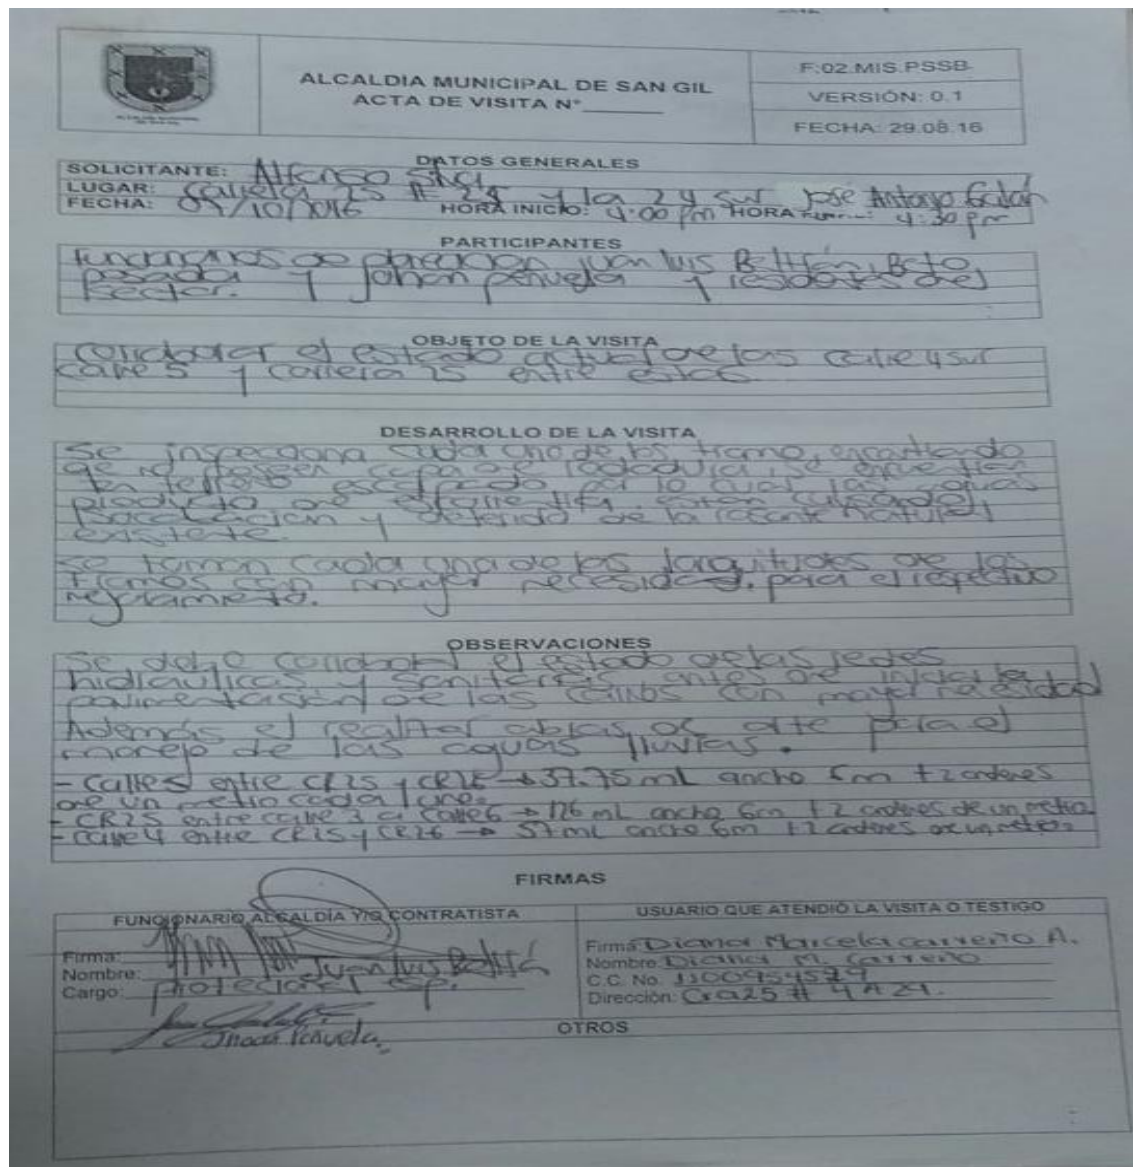 ALCALDIA MUNICIPAL DE SAN GIL
ACTA DE VISITA N°
F:02.MIS.PSSB
VERSIÓN: 0.1
FECHA: 29.08.16
DATOS GENERALES
SOLICITANTE: Alfonso Silva
LUGAR: Carrera 25 # 24 y la 24 sur Jose Antonio Galán
FECHA: /10/2016 HORA INICIO: 4:00 pm HORA 4:30 pm
PARTICIPANTES
Funcionarios de planeacion Juan luis Beltrán, Beto
posada y Johan peñuela y residentes del
sector.
OBJETO DE LA VISITA
corroborar el estado actual de las calle 4 sur
calle 5 y carrera 25 entre estas
DESARROLLO DE LA VISITA
se inspecciona cada uno de los tramo, encontrando
qe no poseen capa de rodadura, se encuentran
en terreno escarpado por lo cual las aguas
producto de escorrentia, estan causando
socavación y deterioro de la rasante natural
existente.
se toman cada una de las longitudes de los
tramos con mayor necesidad, para el respectivo
mejoramiento.
OBSERVACIONES
Se debe corroborar el estado de las redes
hidraulicas y sanitarias antes de iniciar la
pavimentasión de las calles con mayor necesidad
Además el realizar obras de arte para el
manejo de las aguas lluvias.
- Calle 5 entre CR25 y CR26 → 37.75 ml ancho 6m + 2 andenes
de un metro cada uno.
- CR25 entre calle 3 a calle 6 → 126 ml ancho 6m + 2 andenes de un metro.
- Calle 4 entre CR25 y CR26 → 57 ml ancho 6m + 2 andenes de un metro.
FIRMAS
FUNCIONARIO ALCALDÍA Y/O CONTRATISTA
USUARIO QUE ATENDIÓ LA VISITA O TESTIGO
Firma:
Nombre: Juan luis Beltrán
Cargo: profesional esp.
Firma: Diana Marcela carreño A.
Nombre: Diana M. Carreño
C.C. No. 1100954579
Dirección: Cra 25 # 4A21.
Johan Peñuela
OTROS